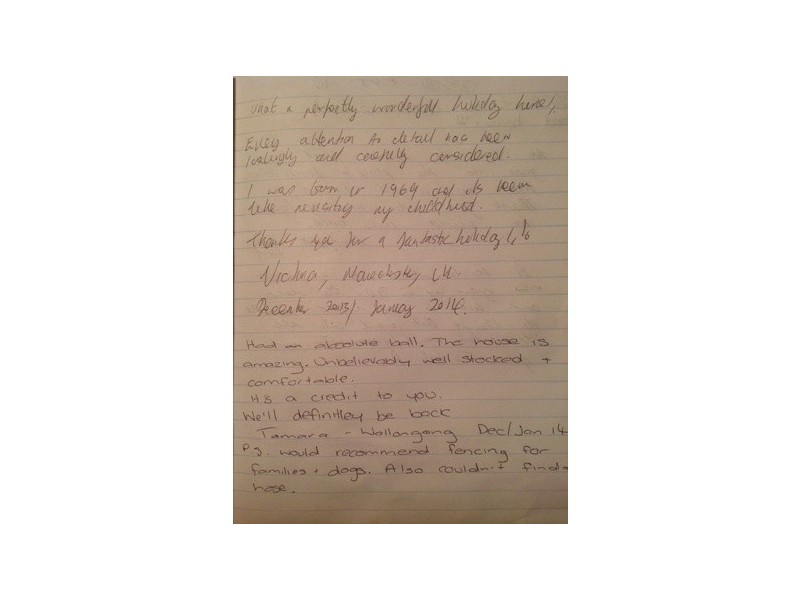 What a perfectly wonderful holiday home!,
Every attention to detail has been
lovingly and carefully considered.
I was born in 1969 and its been
like revisiting my childhood.
Thank you for a fantastic holiday!,!
Victoria, Manchester, UK.
December 2013/ January 2014.
Had an absolute ball. The house is
amazing. Unbelievably well stocked +
comfortable.
It's a credit to you.
We'll definitley be back
Tamara - Wollongong Dec/Jan 14
P.S. would recommend fencing for
families + dogs. Also couldn't find
hose.